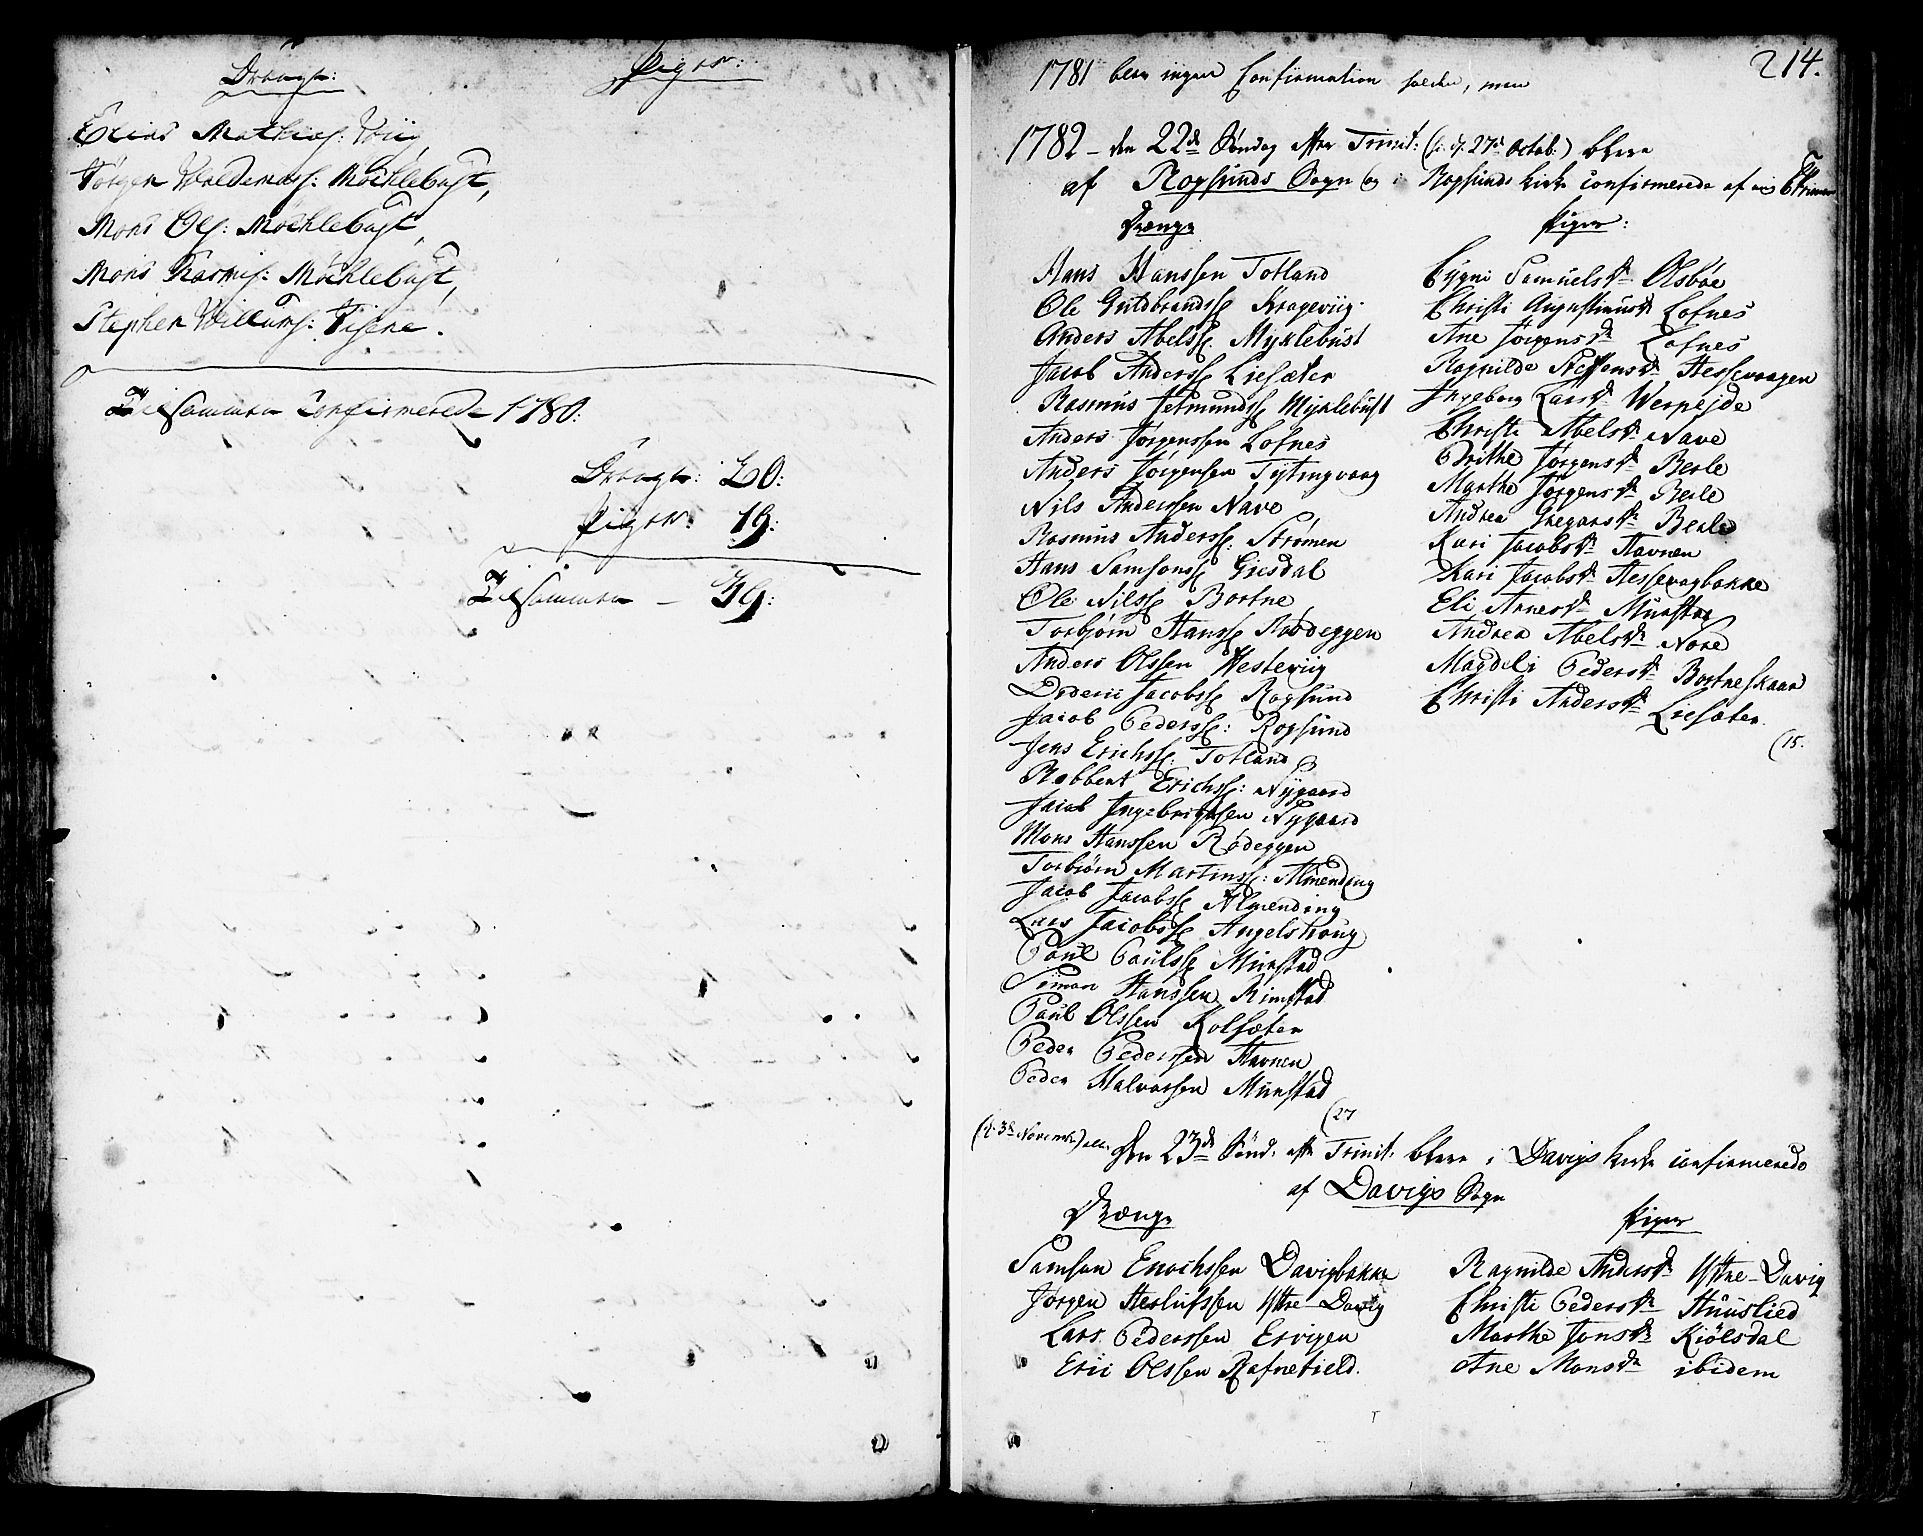 Drenge: Piger:
Elias Mathias: Viig,
Jørgen Woldemars: Möchlebust,
Mons Ols: Möchlebust,
Mons Rasmus: Möchlebust,
Stephen Willums: Tisene.
Tilsammen Confirmerede 1780:
Drenge: 20:
Piger: 19:
Tilsammen – 39:
214.
1781 blev ingen Confirmation holden, men
1782 – den 22de Søndag efter Trinit: (d. 27de Octob:) bleve
af Rogsunds Sogn og i Rogsunds kirke confirmerede af
Drenge
Hans Hanssen Totland
Ole Guldbrandss Krageviig
Anders Abelss. Myklebust
Jacob Anderss Liesæter
Rasmus Jetmundss Myklebust
Anders Jørgenssen Lofnes
Anders Jørgensen Tytingvaag
Nils Anderssen Nave
Rasmus Anderss: Strømen
Hans Samsonss Gresdal
Ole Nilss Bortne
Torbjørn Hanss Rødeggen
Anders Olssen Westeviig
Didric Jacobss Rogsund
Jacob Pederss: Rogsund
Jens Erichss: Totland
Robbert Erichss: Nygaard
Jacob Ingebrigtsen Nygaard
Mons Hanssen Rødeggen
Torbjørn Martinss: Almending
Jacob Jacobss Almending
Lars Jacobss Angelstrøng
Paul Paulss Munstad
Simon Hanssen Rimstad
Paul Olssen Kolsæter
Peder Pederssen Havnen
Peder Halvorssen Munstad
(27
Piger:
Sygni Samuelsdr Olsbøe
Christi Augustinusdr Lofnes
Ane Jørgensdr Lofnes
Ragnilde Steffensdr Hessevaagen
Ingeborg Larsdr Werpejde
Christi Abelsdr Nave
Brithe Jørgensdr Berle
Marthe Jørgensdr Berle
Andrea Gregorsdr Berle
Kari Jacobsdr Havnen
Kari Jacobsdr Hessevagbakke
Eli Arnesdr Munstad
Andrea Abelsdr Nave
Magdeli Pedersdr Bortneskaar
Christi Andersdr Liesæter.
(15.
(d. 3de Novembr) Den 23de Sönd. efter Trinit. bleve i Davigs kirke confirmerede
af Davigs Sogn
Drenge
Samson Enochssen Davigbakke
Jørgen Herlufssen Ystre-Davig
Lars Pederssen Ervigen
Eric Olssen Rafnefield.
Piger
Ragnilde Andersdr Ystre-Davig
Christi Pedersdr Huuslied
Marthe Jonsdr Kiölsdal
Ane Monsdr ibidem